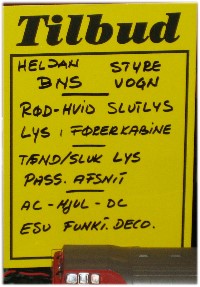 Tilbud
HELJAN STYRE
BNS VOGN
RØD-HVID SLUTLYS
LYS I FØRERKABINE
TÆND/SLUK LYS
PASS. AFSNIT
AC-HJUL-DC
ESU FUNKT. DECO.